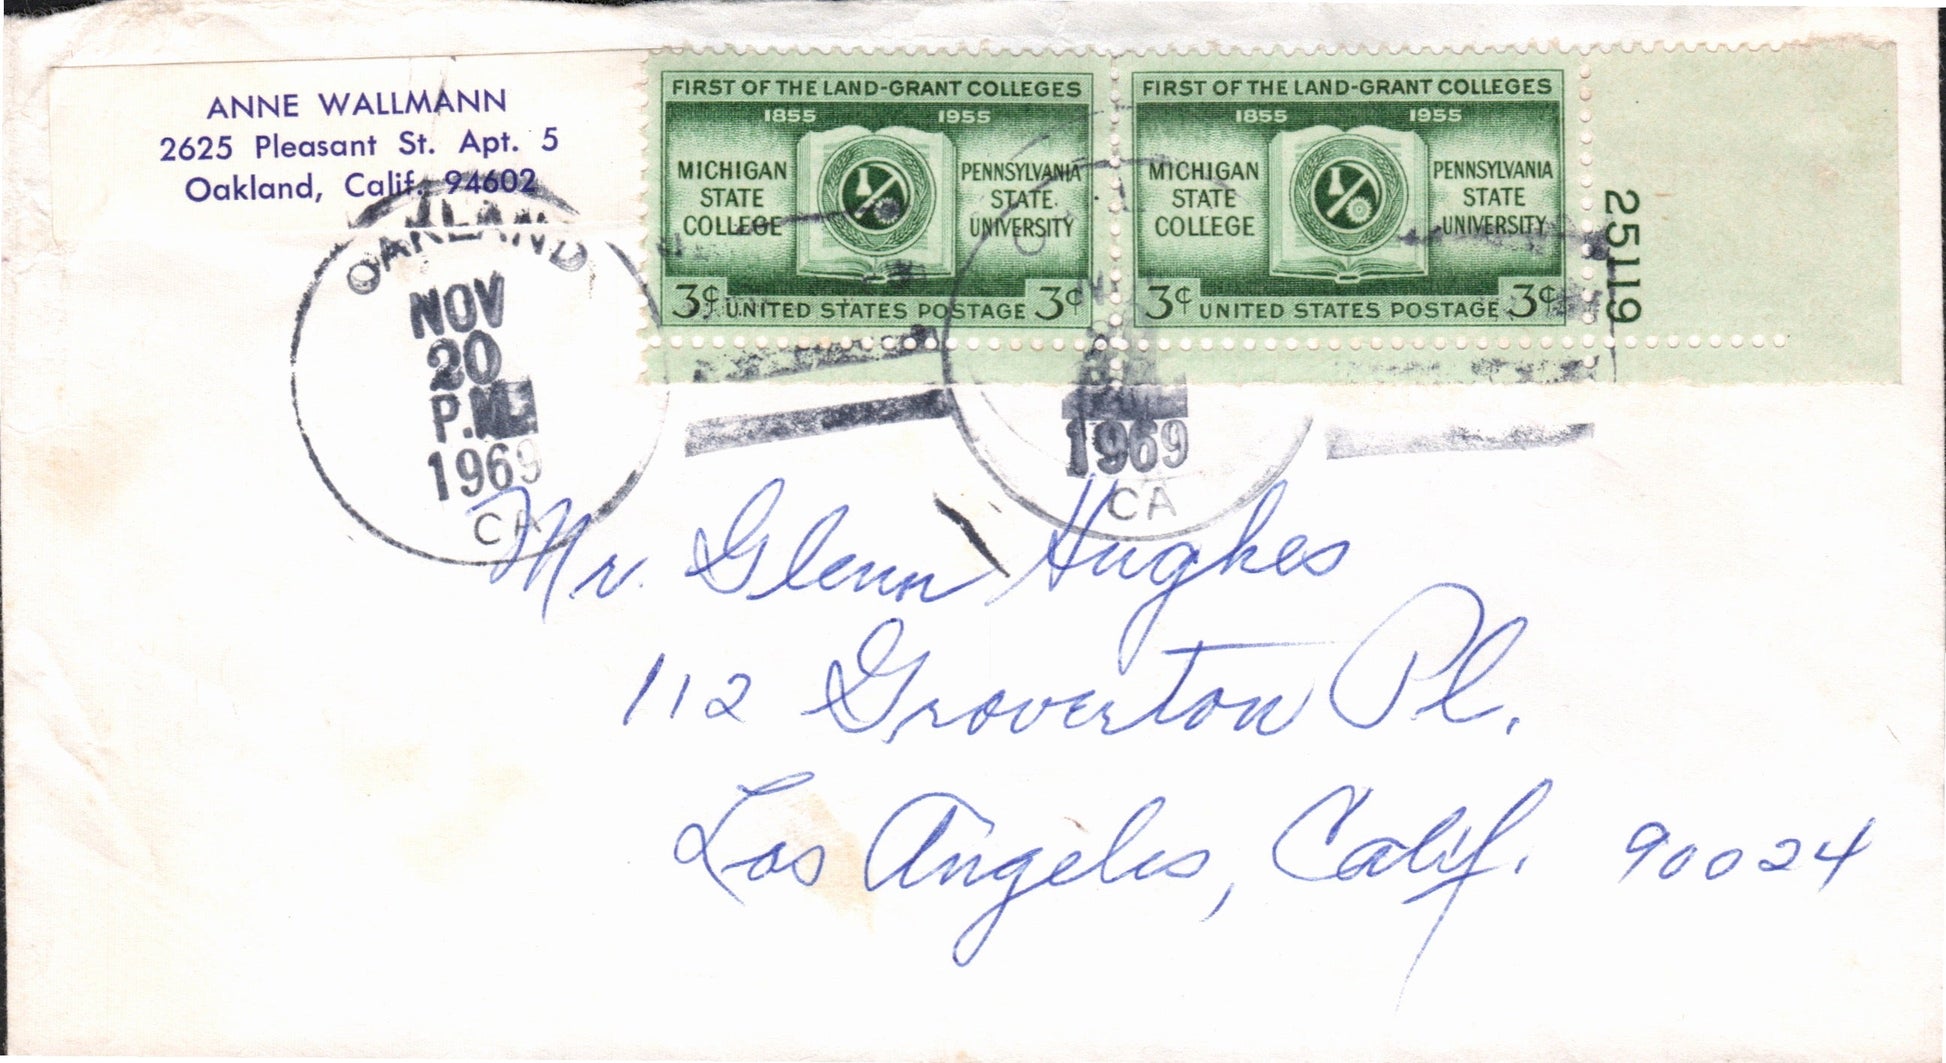 ANNE WALLMANN
2625 Pleasant St. Apt. 5
Oakland, Calif. 94602
FIRST OF THE LAND-GRANT COLLEGES
1855 1955
MICHIGAN STATE COLLEGE
PENNSYLVANIA STATE UNIVERSITY
3¢ UNITED STATES POSTAGE 3¢
FIRST OF THE LAND-GRANT COLLEGES
1855 1955
MICHIGAN STATE COLLEGE
PENNSYLVANIA STATE UNIVERSITY
3¢ UNITED STATES POSTAGE 3¢
25119
OAKLAND
NOV
20
P.M.
1969
CA
1969
CA
Mr. Glenn Hughes
112 Groverton Pl.
Los Angeles, Calif. 90024